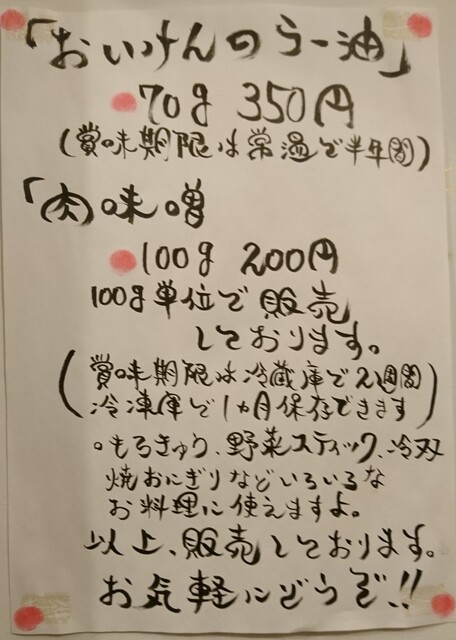 「おいけんのラー油」
70g 350円
(賞味期限は常温で半年間)
「肉味噌
100g 200円
100g単位で販売
しております。
(賞味期限は冷蔵庫で2週間
冷凍庫で1ヵ月保存できます)
。もろきゅう、野菜スティック、冷奴
焼おにぎりなどいろいろな
お料理に使えますよ。
以上、販売しております。
お気軽にどうぞ!!